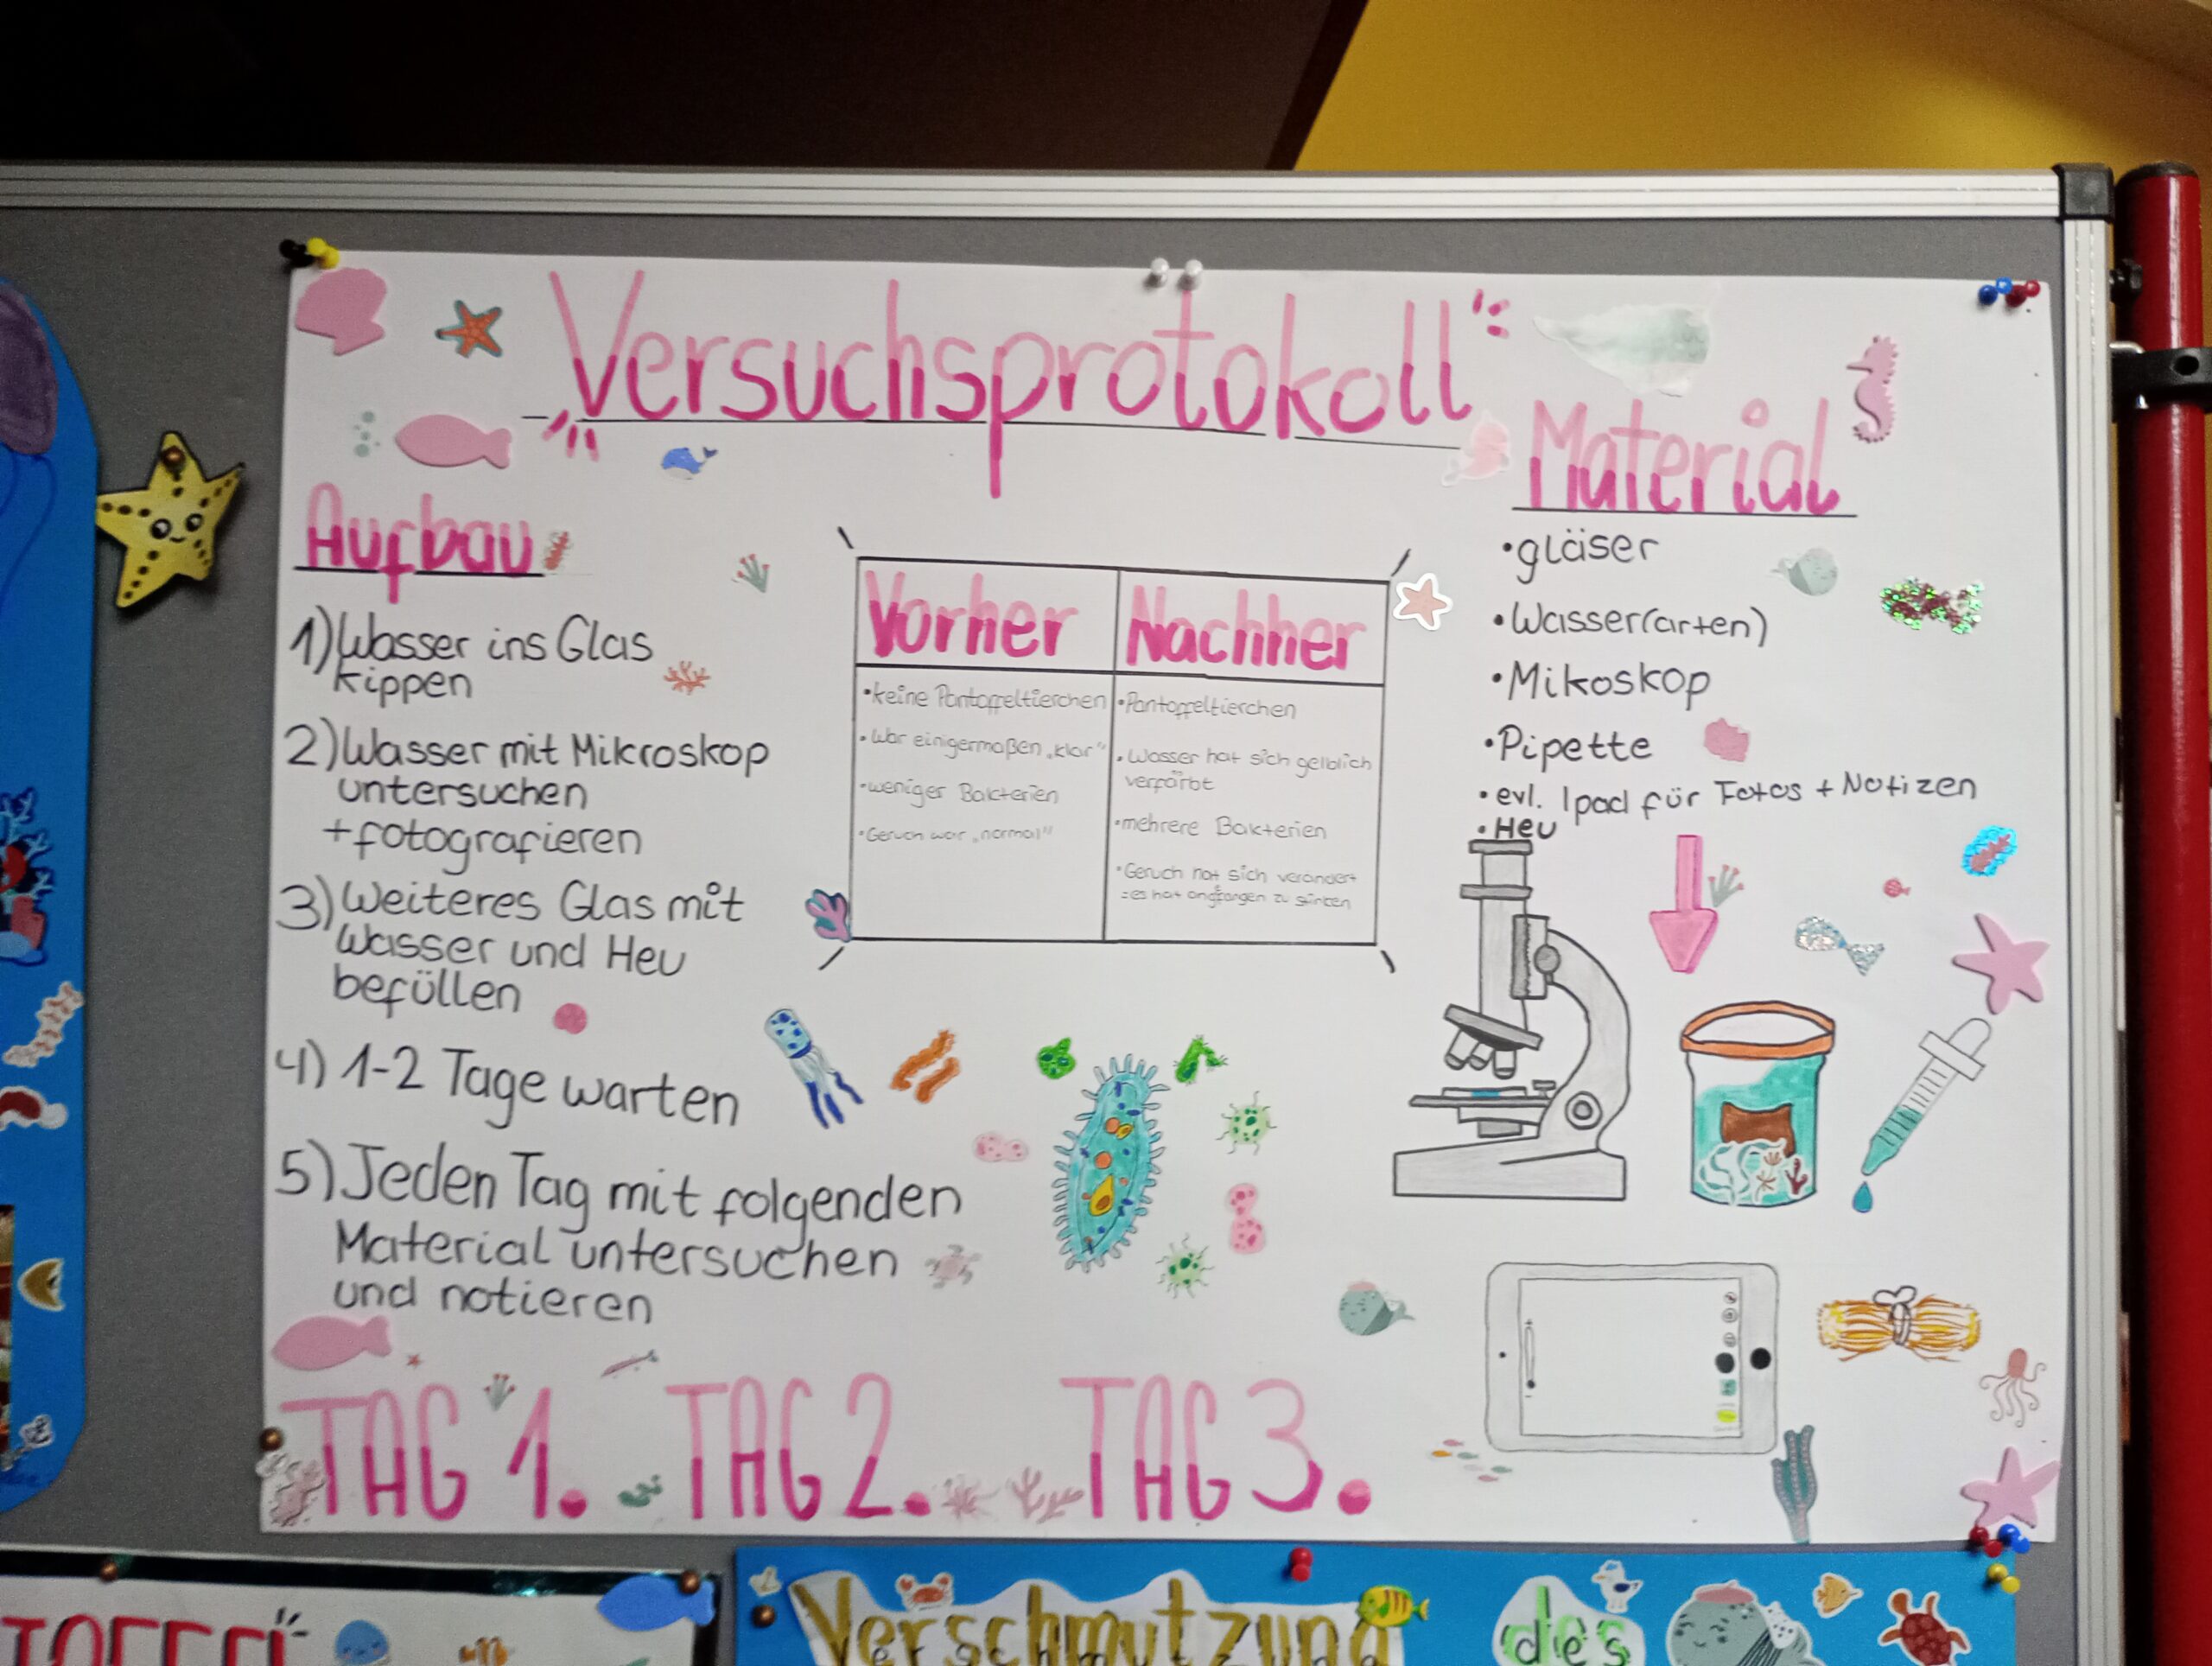 Versuchsprotokoll
Aufbau
1) Wasser ins Glas
kippen
2) Wasser mit Mikroskop
untersuchen
+fotografieren
3) Weiteres Glas mit
Wasser und Heu
befüllen
4) 1-2 Tage warten
5) Jeden Tag mit folgenden
Material untersuchen
und notieren
Vorher
•keine Pantoffeltierchen
•War einigermaßen „klar"
•weniger Bakterien
•Geruch war „normal"
Nachher
•Pantoffeltierchen
•Wasser hat sich gelblich
verfärbt
•mehrere Bakterien
•Geruch hat sich verändert
=es hat angfangen zu stinken
Material
•gläser
•Wasser(arten)
•Mikoskop
•Pipette
•evl. Ipad für Fotos + Notizen
•Heu
TAG 1. TAG 2. TAG 3.
Verschmutzung des